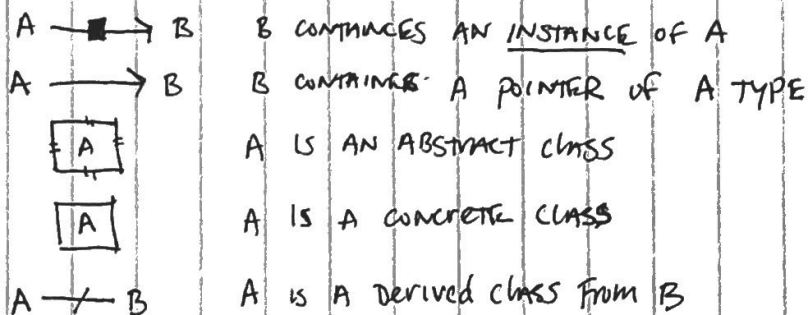 A B B CONTAINCES AN INSTANCE OF A
A B B CONTAINES A POINTER OF A TYPE
A A IS AN ABSTRACT CLASS
A A IS A CONCRETE CLASS
A B A IS A DERIVED CLASS FROM B